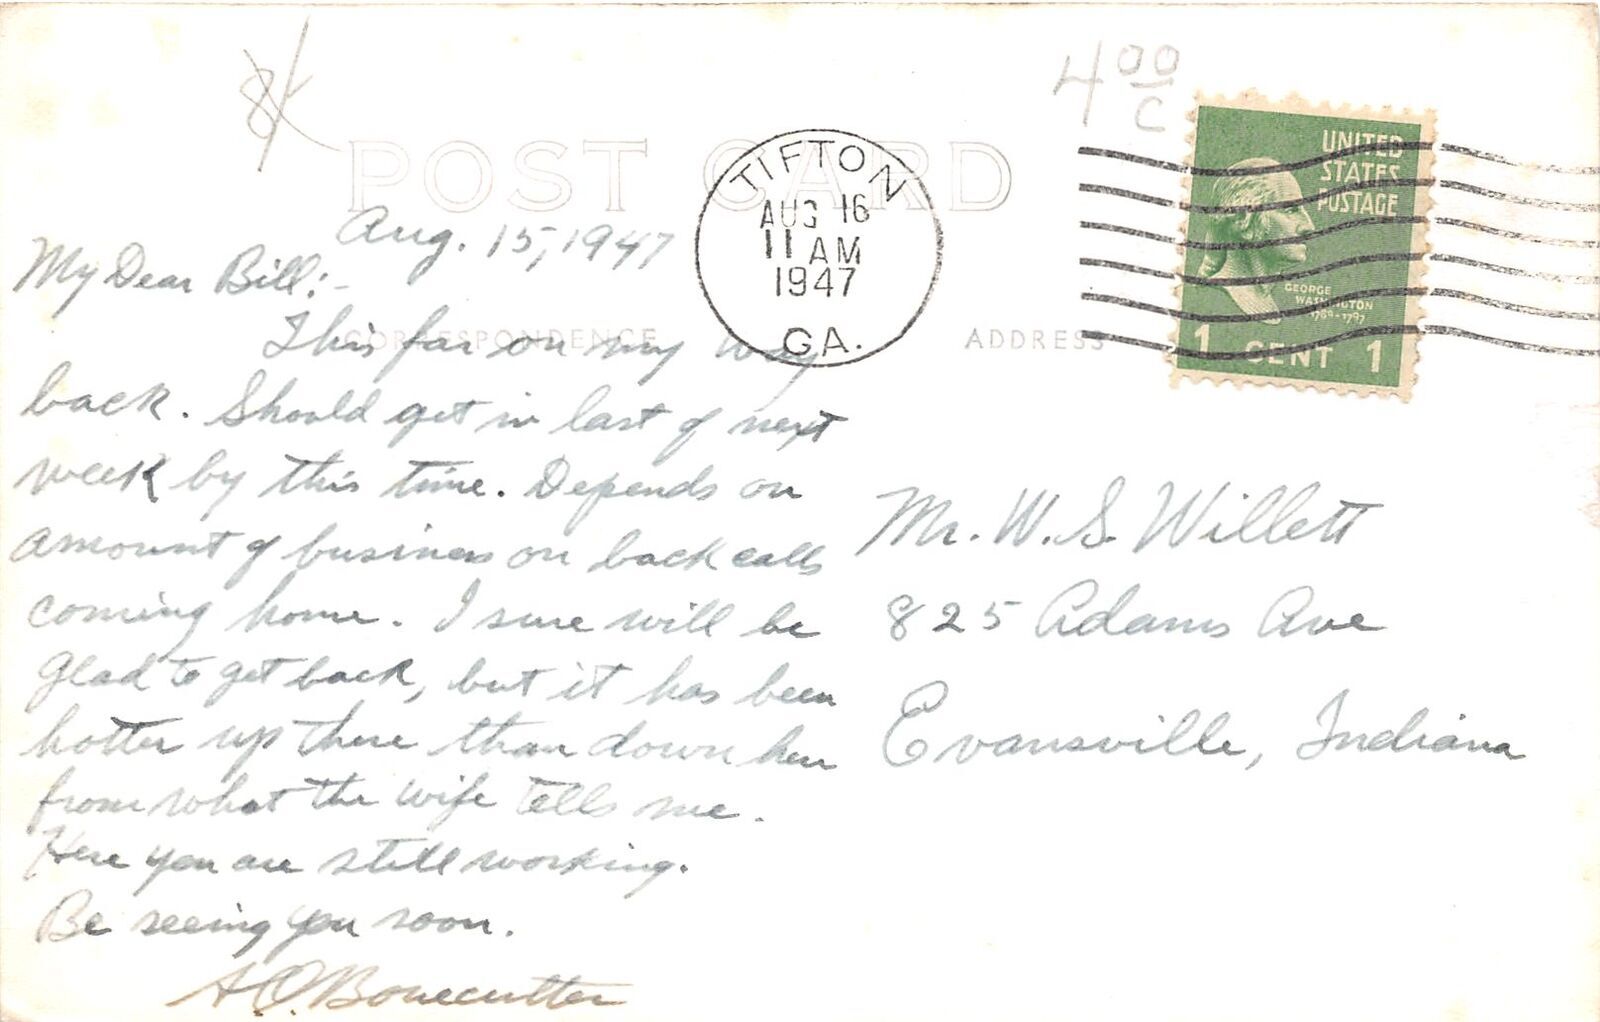 4 00/c
POST CARD
TIFTON
AUG 16
11 AM
1947
GA.
UNITED
STATES
POSTAGE
GEORGE
WASHINGTON
1789-1797
1 CENT 1
CORRESPONDENCE
ADDRESS
Aug. 15, 1947
My Dear Bill:-
This far on my way
back. Should get in last of next
week by this time. Depends on
amount of business on back calls
coming home. I sure will be
glad to get back, but it has been
hotter up there than down here
from what the wife tells me.
Here you are still working.
Be seeing you soon.
A.O. Bonecutter
Mr. W. S. Willett
825 Adams Ave
Evansville, Indiana